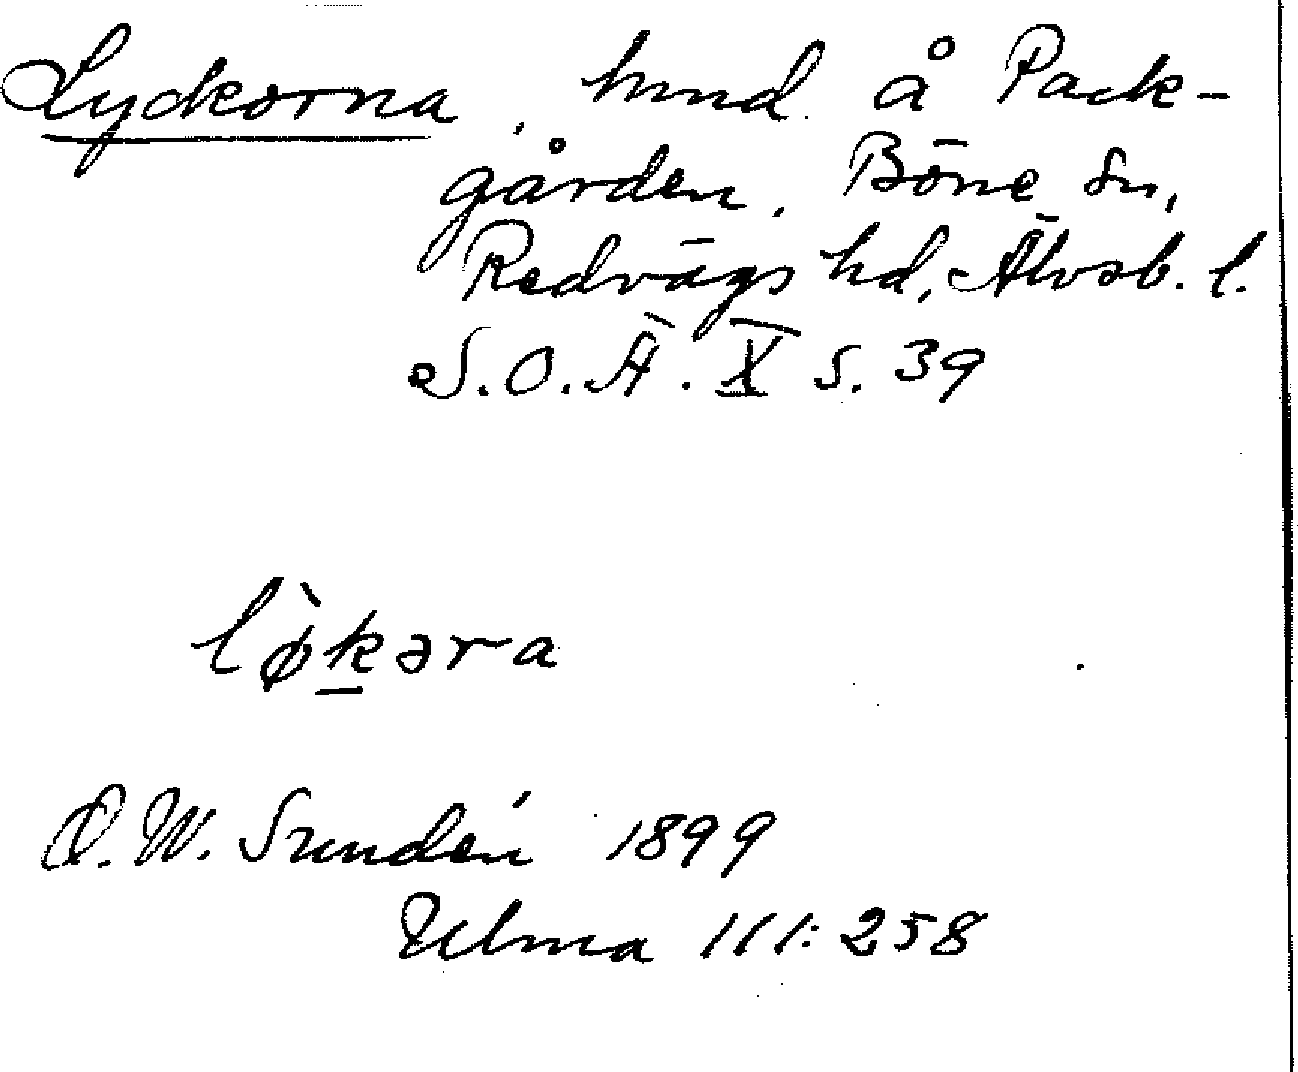 Lyckorna, hmd. å Pack-
gården. Böne sn,
Redvägs hd, Älvsb. l.
S.O.Ä. X s. 39
lø̀kəra
D. W. Sundén 1899
Ulma 111:258